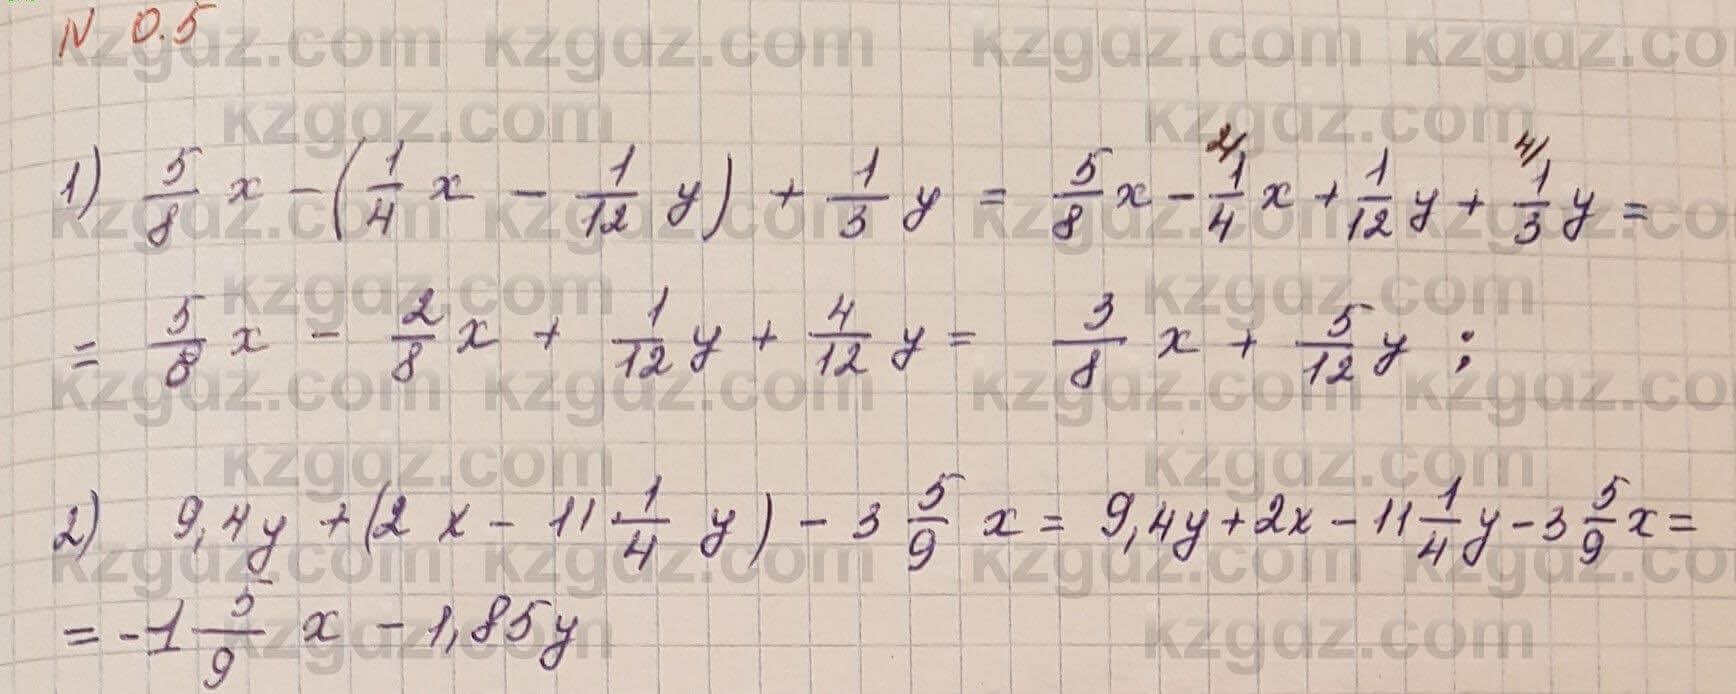 N 0.5
1) 5/8 x - (1/4 x - 1/12 y) + 1/3 y = 5/8 x - 2/ 1/4 x + 1/12 y + 4/ 1/3 y =
= 5/8 x - 2/8 x + 1/12 y + 4/12 y = 3/8 x + 5/12 y ;
2) 9,4y + (2x - 11 1/4 y) - 3 5/9 x = 9,4y + 2x - 11 1/4 y - 3 5/9 x =
= -1 5/9 x - 1,85y
kzgdz.com